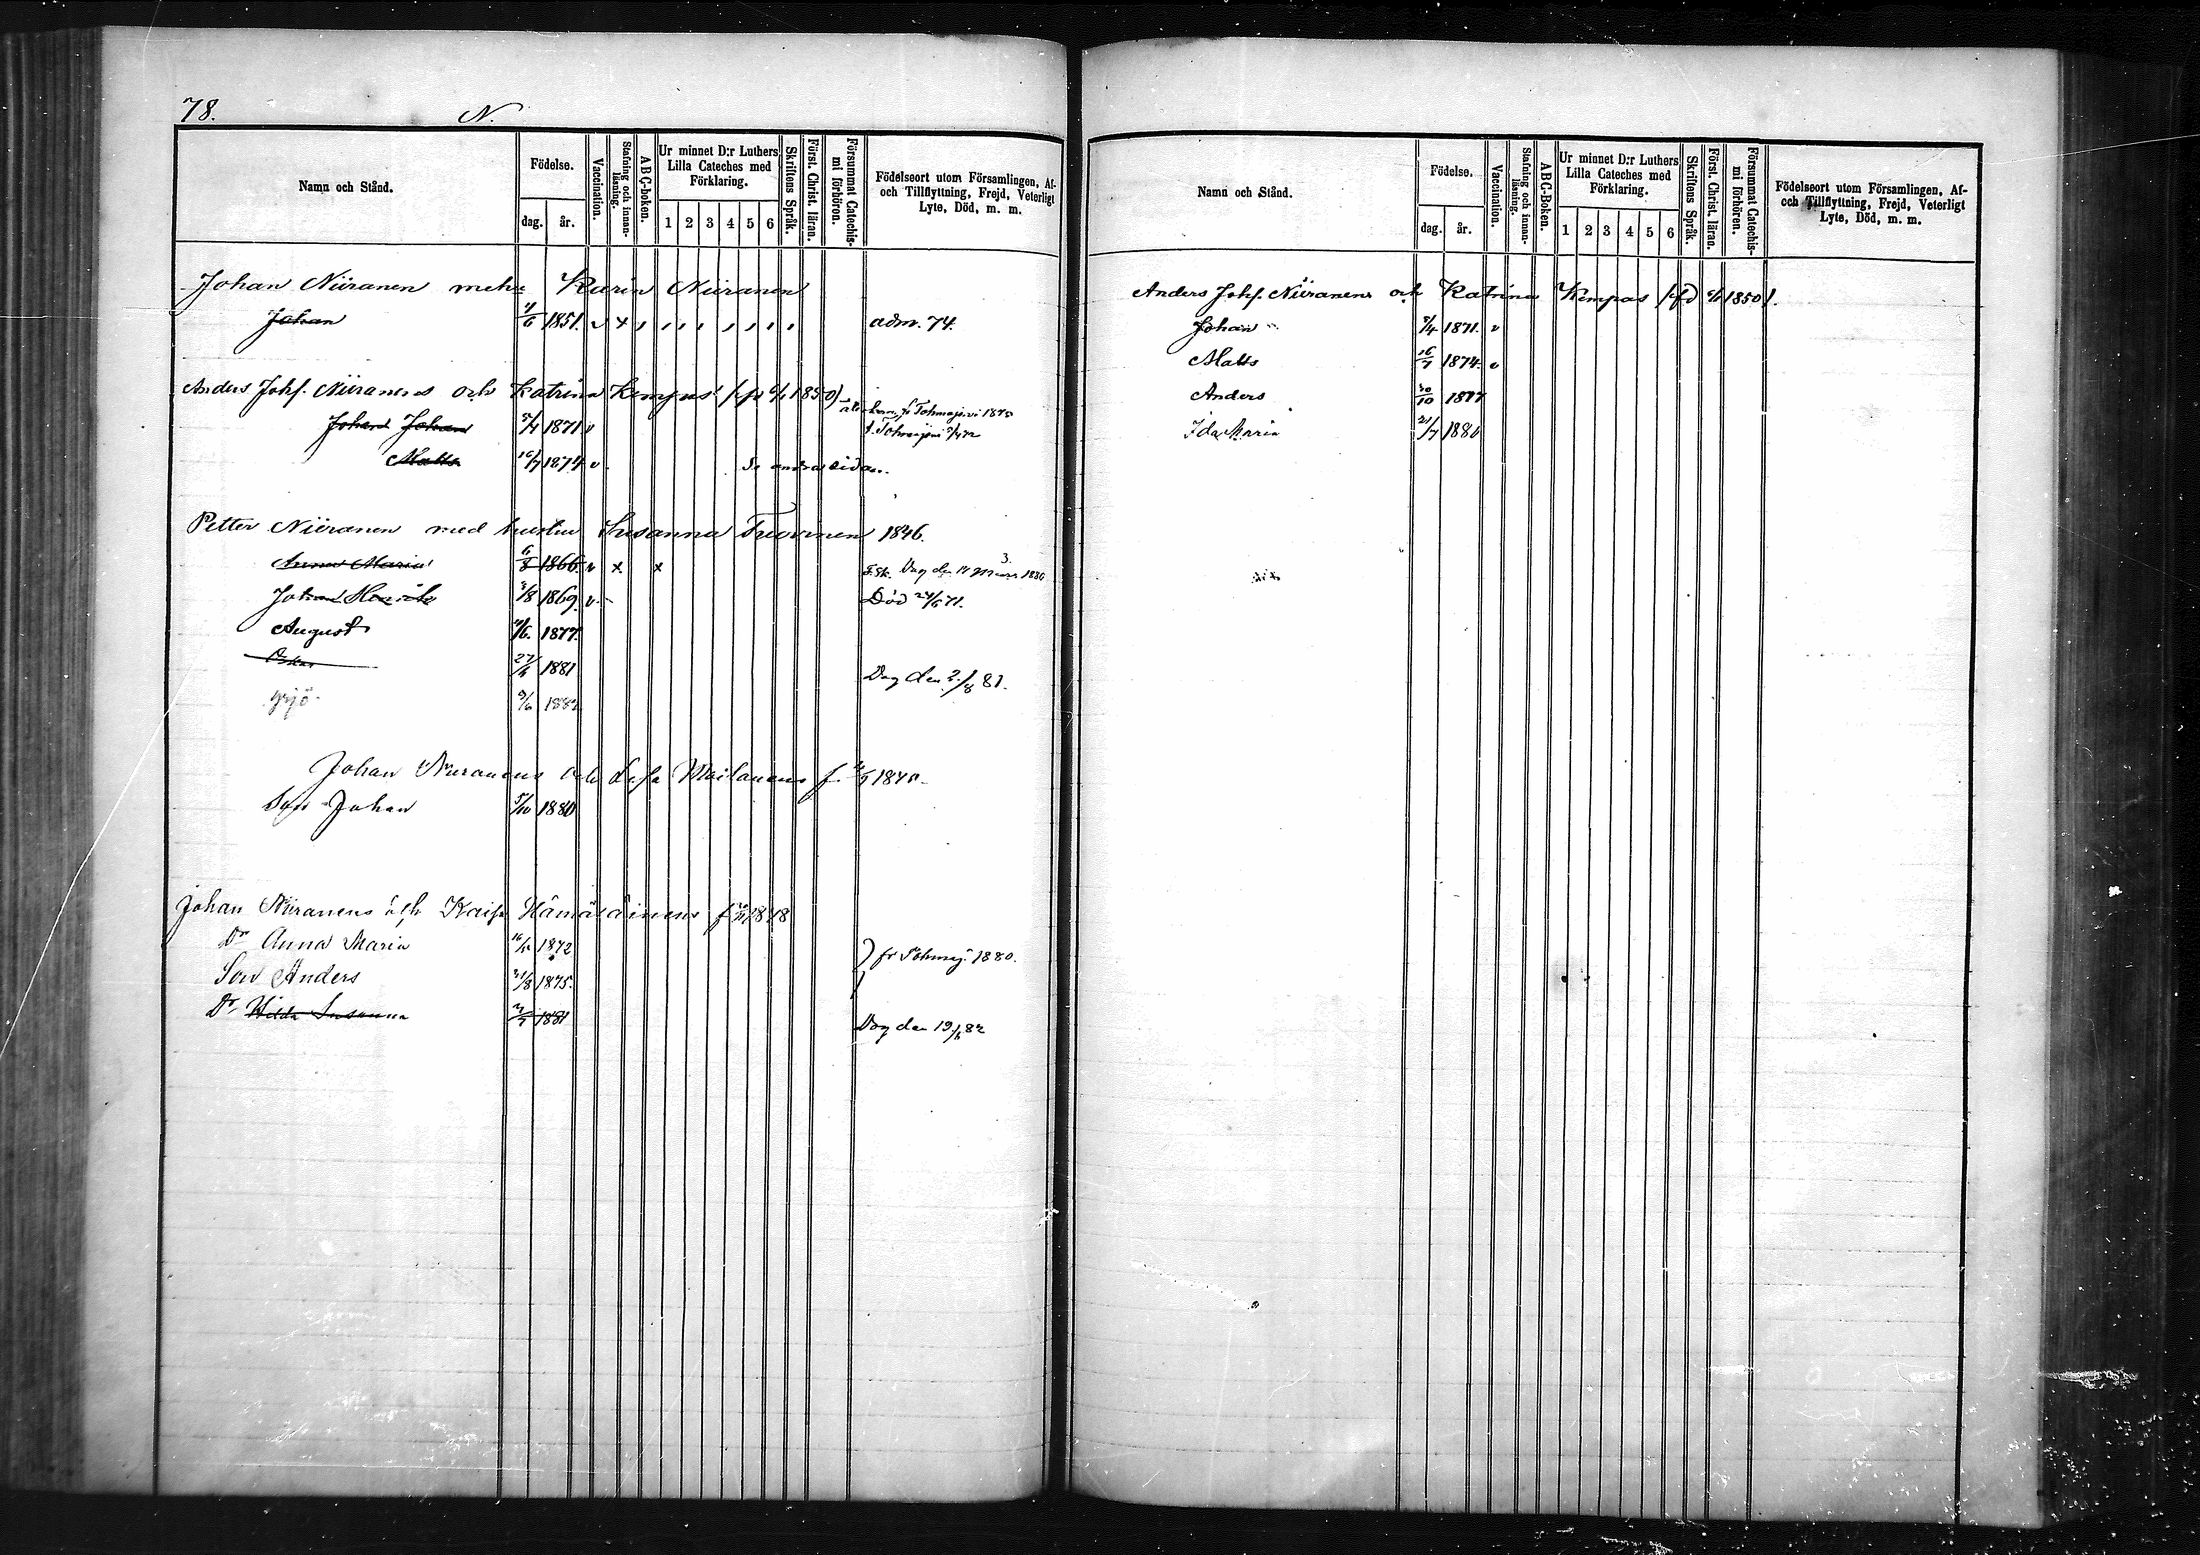 78. N.
Namn och Stånd. Födelse. dag. år. Vaccination. Stafning och innanläsning. ABC-boken. Ur minnet D:r Luthers Lilla Cateches med Förklaring. 1 2 3 4 5 6 Skriftens Språk. Först. Christ. läran. Försummat Catechismi förhören. Födelseort utom Församlingen, Af- och Tillflyttning, Frejd, Veterligt Lyte, Död, m. m.
Johan Niiranen Karin Niiranen
Johan 1851. adm. 74.
Anders Johs. Niiranens och Katrina Kempas 1850)
Johan 1871
Matts 16/7 1874 Se andra sidan.
Petter Niiranen med hustru Susanna Tuovinen 1846.
Anna Maria 6/8 1866
Johan Henrik 1869. Död 24/6 71.
August 1877.
Oskar 27/4 1881 Dog den 2/8 81.
Yrjö 9/6
Johan Niiranens och Lisa 1840.
Son Johan 5/10 1880
Johan Niiranens och Kaisa Hämäläinens 1848
Dr Anna Maria 1872 fr Tohmaj. 1880.
Son Anders 1875.
Dr Hilda Susanna 1881 Dog den 82
Namn och Stånd. Födelse. dag. år. Vaccination. Stafning och innanläsning. ABC-Boken. Ur minnet D:r Luthers Lilla Cateches med Förklaring. 1 2 3 4 5 6 Skriftens Språk. Först. Christ. läran. Försummat Catechismi förhören. Födelseort utom Församlingen, Af- och Tillflyttning, Frejd, Veterligt Lyte, Död, m. m.
Anders Johs. Niiranens och Katrina Kempas 1850).
Johan 1871. v
Matts 16/7 1874. v
Anders 30/10 1877
Ida Maria 21/7 1880